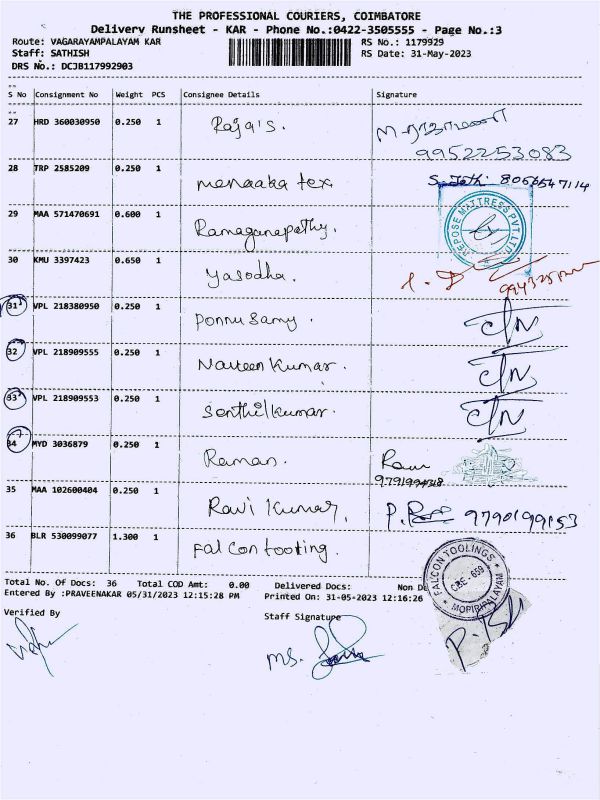 THE PROFESSIONAL COURIERS, COIMBATORE
Delivery Runsheet - KAR - Phone No.:0422-3505555 - Page No.:3
Route: VAGARAYAMPALAYAM KAR RS No.: 1179929
Staff: SATHISH RS Date: 31-May-2023
DRS No.: DCJB117992903
S No Consignment No Weight PCS Consignee Details Signature
27 HRD 360030950 0.250 1 Raja's.
9952253083
28 TRP 2585209 0.250 1 menaaka tex.
29 MAA 571470691 0.600 1 Ramaganapathy.
REPOSE MATTRESS PVT LTD
30 KMU 3397423 0.650 1 Yasodha.
31 VPL 218380950 0.250 1 Ponnu Samy.
32 VPL 218909555 0.250 1 Naveen Kumar.
33 VPL 218909553 0.250 1 Senthilkumar.
34 MYD 3036879 0.250 1 Raman.
35 MAA 102600404 0.250 1 Ravi Kumar. 9790199153
36 BLR 530099077 1.300 1 Falcon tooling.
FALCON TOOLINGS
CBE - 659
MOPIRIPALAYAM
Total No. Of Docs: 36 Total COD Amt: 0.00 Delivered Docs: Non De
Entered By :PRAVEENAKAR 05/31/2023 12:15:28 PM Printed On: 31-05-2023 12:16:26
Verified By Staff Signature